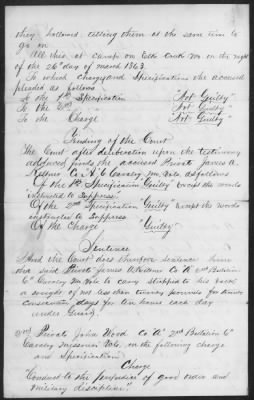 they hollowed, telling them at the same time to
go in
All this at camp on Elk Creek Mo on the night
of the 26th day of march 1863.
To which charge and Specifications the accused
pleaded as follows
To the 1st Specification "Not Guilty"
To the 2nd " "Not Guilty"
To the Charge "Not Guilty"
Finding of the Court
The Court after deliberation upon the testimony
adduced finds the accused Private James A
Co "A" 6" Cavalry Mo Vols. as follows
Of the 1st Specification "Guilty" except the words
"attempted to Suppress"
Of the 2nd Specification "Guilty" Except the words
to Suppress
Of the Charge "Guilty"
Sentence
And the Court does therefore sentence him
the said Private James A Co "A" 2nd Battalion
6" Cavalry Mo Vols to carry strapped to his back
a weight of not less than twenty pounds for twenty
consecutive days for ten hours each day
under Guard.
3rd Private John Wood Co "A" 2nd Battalion 6"
Cavalry Missouri Vols. on the following charge
and Specification
Charge
"Conduct to the prejudice of good order and
military discipline"